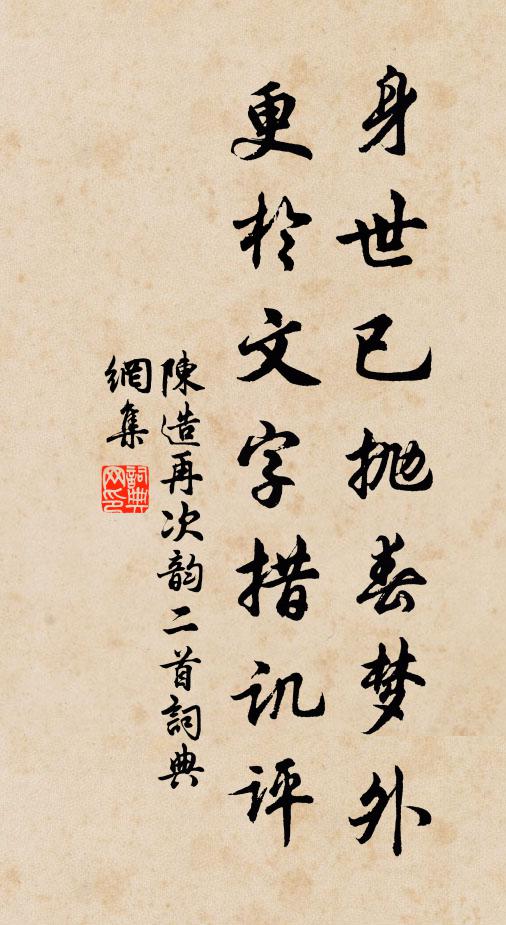 身世已抛春梦外
更於文字措讥评
陳造再次韵二首詞典
網集
詞典网印